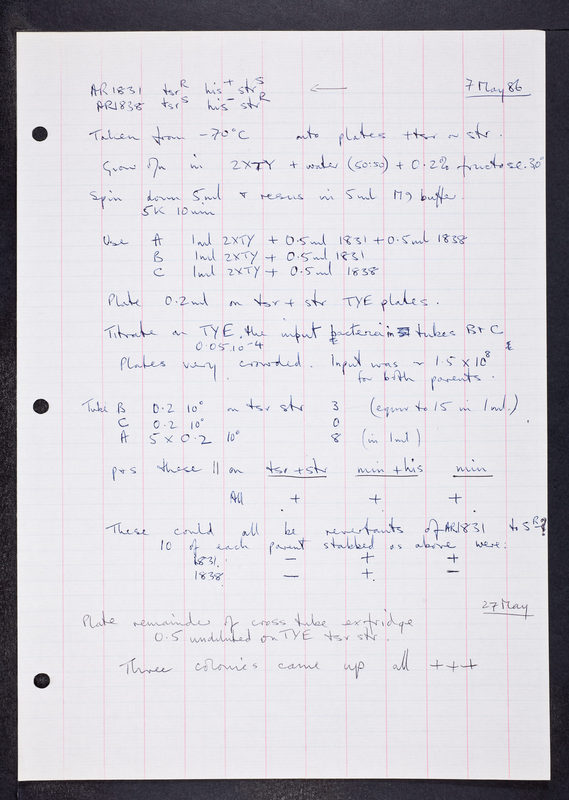 7 May 86
AR1831 tsr^R his^+ str^S ←
AR1838 tsr^S his^- str^R
Taken from -70°C onto plates +tsr or str.
Grow o/n in 2XTY + water (50:50) + 0.2% fructose. 30°
Spin down 5ml & resus in 5ml M9 buffer.
5K 10 min
Use A 1ml 2XTY + 0.5ml 1831 + 0.5ml 1838
B 1ml 2XTY + 0.5ml 1831
C 1ml 2XTY + 0.5ml 1838
Plate 0.2ml on tsr + str TYE plates.
Titrate on TYE, the input bacteria in tubes B + C
0.05 10^-4
Plates very crowded. Input was ~ 1.5 × 10^8
for both parents.
Tube B 0.2 10° on tsr str 3 (equiv to 15 in 1ml.)
C 0.2 10° 0
A 5 × 0.2 10° 8 (in 1ml)
these 11 on tsr + str min + his min
All + + +
These could all be revertants of AR1831 to S^R?
10 of each parent stabbed as above were:
1831. - + +
1838 - + -
27 May
Plate remainder of cross tube ex fridge
0.5 undiluted on TYE tsr str.
Three colonies came up all +++